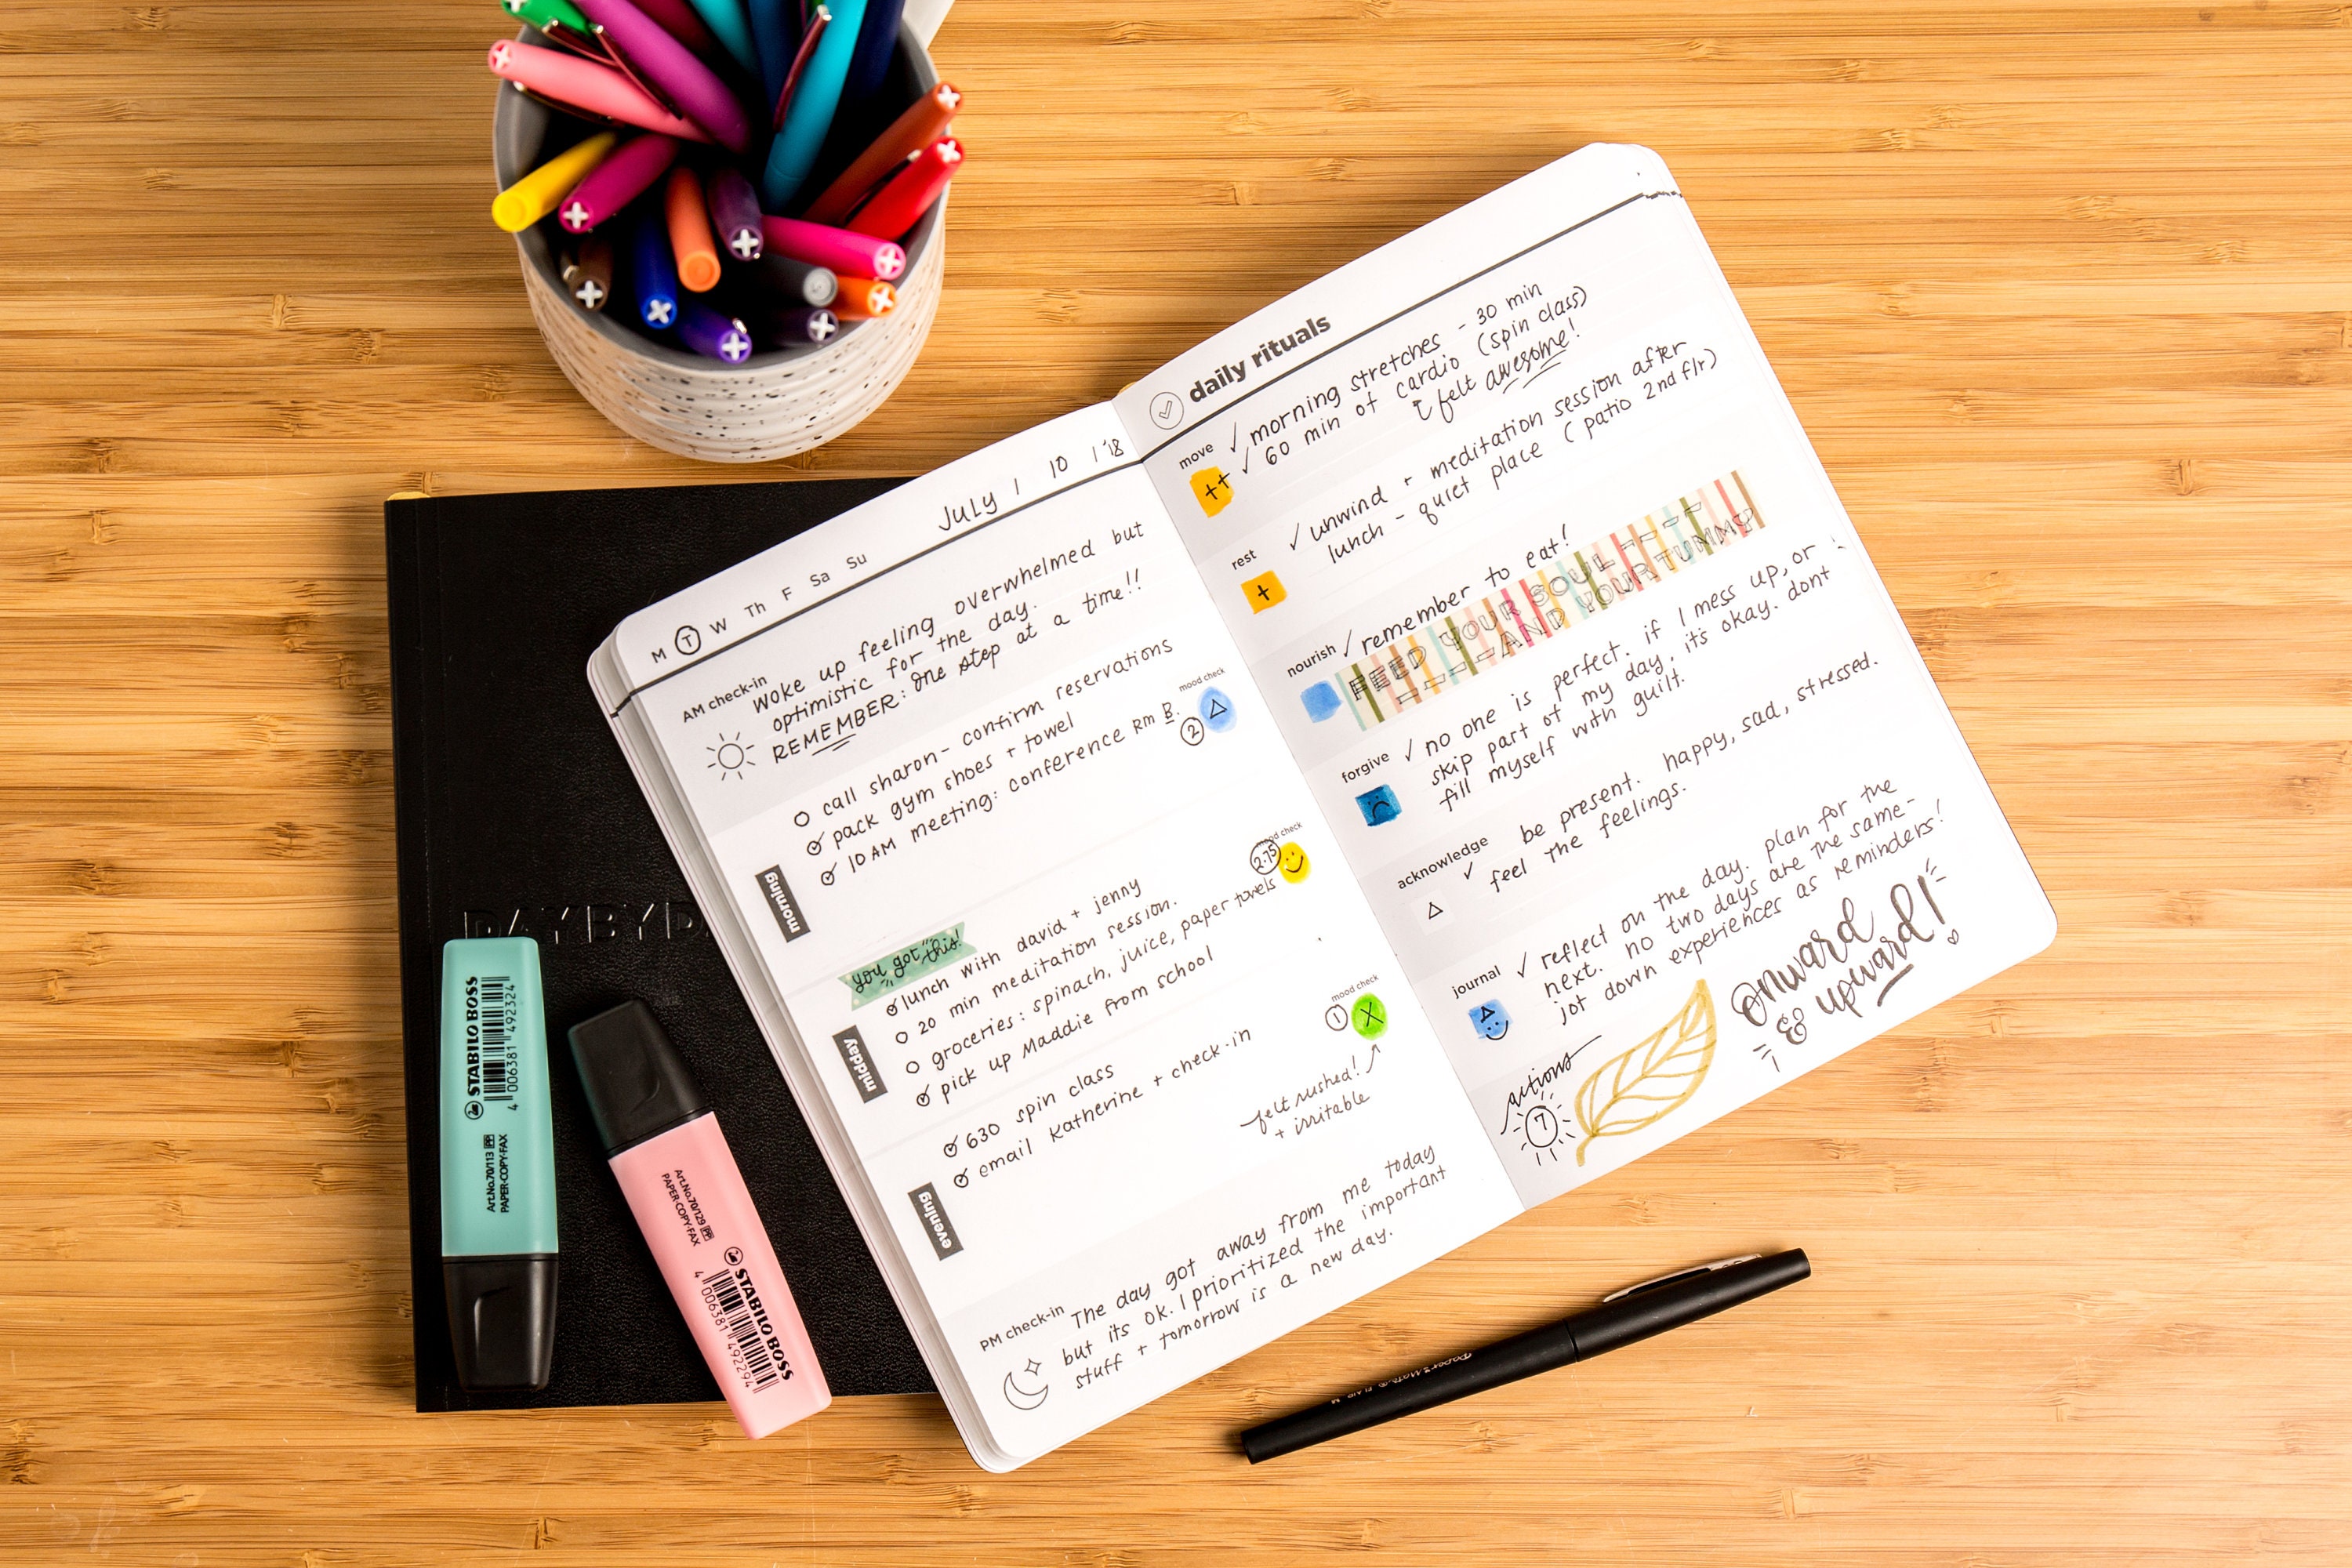 JULY / 10 / '18
M T W Th F Sa Su
AM check-in
woke up feeling overwhelmed but
optimistic for the day.
REMEMBER: one step at a time!!
mood check
2
morning
call sharon - confirm reservations
pack gym shoes + towel
10 AM meeting: conference Rm B.
mood check
2.75
you got this!
midday
lunch with david + jenny
20 min meditation session.
groceries: spinach, juice, paper towels
pick up Maddie from school
mood check
1
evening
630 spin class
email Katherine + check-in
felt rushed!
+ irritable
PM check-in
The day got away from me today
but its ok. I prioritized the important
stuff + tomorrow is a new day.
daily rituals
move
✓ morning stretches - 30 min
✓ 60 min of cardio (spin class)
felt awesome!
++
rest
✓ unwind + meditation session after
lunch - quiet place (patio 2nd flr)
+
nourish
✓ remember to eat!
FEED YOUR SOUL
AND YOUR TUMMY
forgive
✓ no one is perfect. if I mess up, or
skip part of my day, it's okay. dont
fill myself with guilt.
acknowledge
✓ be present. happy, sad, stressed.
feel the feelings.
journal
✓ reflect on the day. plan for the
next. no two days are the same-
jot down experiences as reminders!
actions
7
onward
& upward!
DAYBYD
STABILO BOSS
4 006381 492324
Art.No.70/113 PP
PAPER-COPY-FAX
STABILO BOSS
4 006381 492294
Art.No.70/129 PP
PAPER-COPY-FAX
Paper Mate FLAIR M